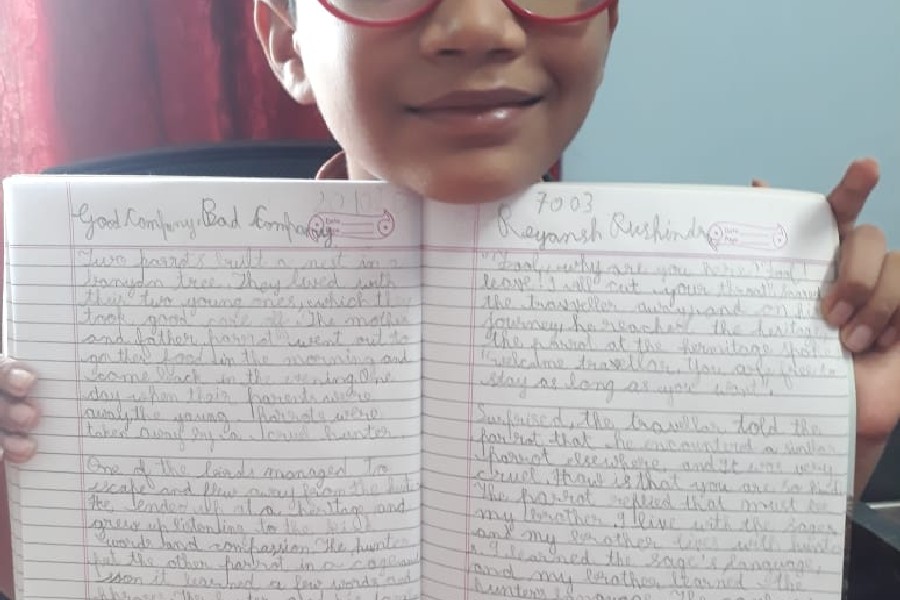 Good Company Bad Company
Two parrots built a nest in a
banyan tree. They lived with
their two young ones, which they
took good care of. The mother
and father parrot went out to
gather food in the morning and
come back in the evening. One
day when their parents were
away the young parrots were
taken away by a cruel hunter.
One of the birds managed to
escape and flew away from the
He ended up at a heritage and
grew up listening to the kind
words and compassion. The hunter
put the other parrot in a cage and
soon it learned a few words and
7003
Reyansh Rushindra
Date
Page
"Fool, why are you here! Fool!
leave! I will cut your throat"
the traveller away, and on his
journey he reached the heritage
the parrot at the hermitage
"welcome traveller, You are free to
stay as long as you want".
Surprised, the traveller told the
parrot that he encountered a similar
parrot elsewhere, and It was very
cruel. How is that you are so kind
The parrot replied that must be
my brother. I live with the sages
and my brother lives with
I learned the sage's language,
and my brother learned the
hunters language. The